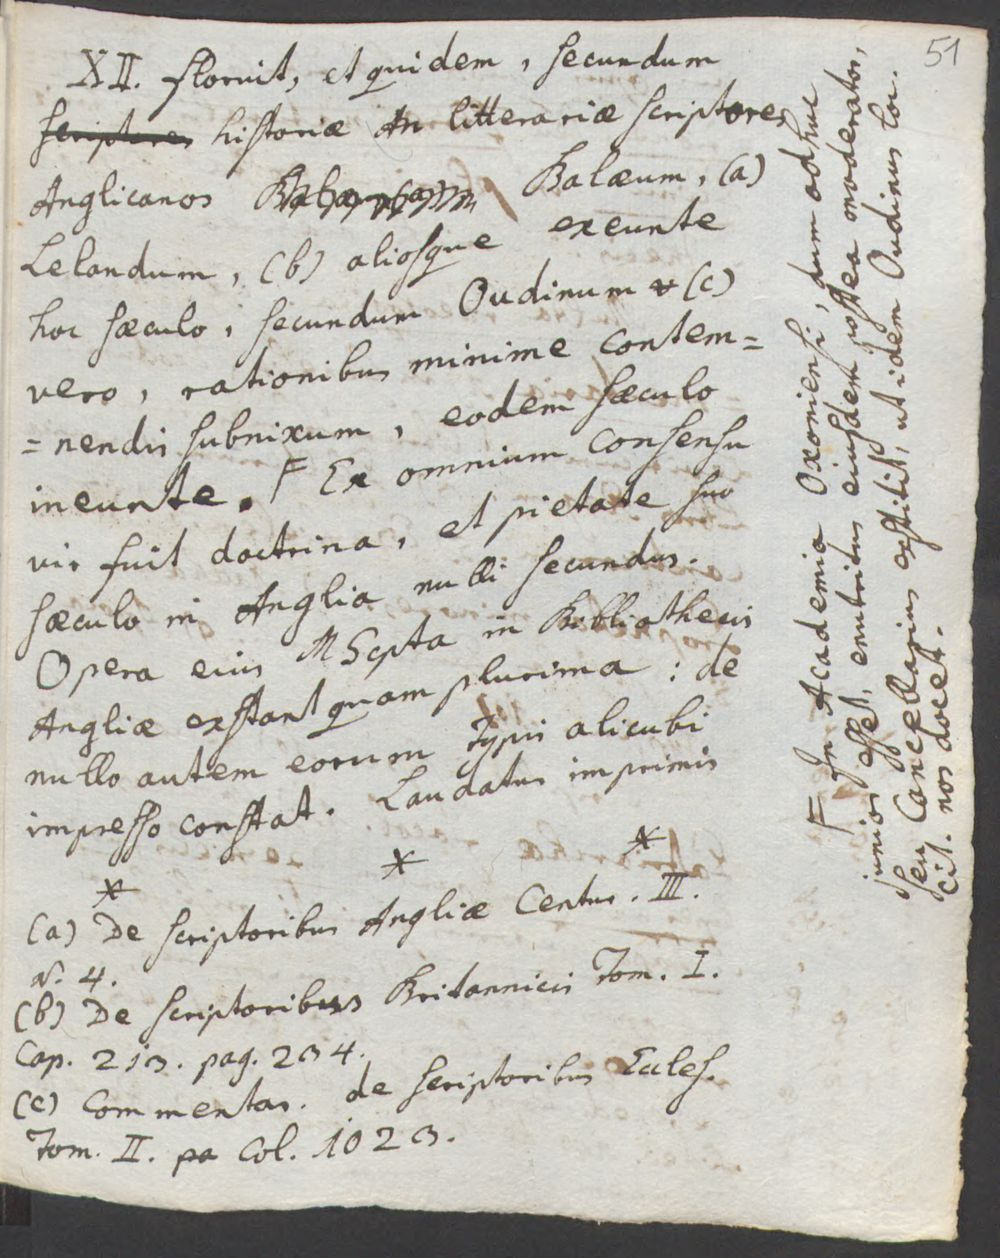 51
XII. floruit, et quidem, secundum
scriptores historiæ An litterariæ scriptores
Anglicanos Balæum, (a)
Lelandum, (b) aliosque exeunte
hoc sæculo, secundum Oudinum v (c)
vero, rationibus minime contem=
=nendis subnixum, eodem sæculo
ineunte. F Ex omnium consensu
vir fuit doctrina, et pietate suo
sæculo in Anglia nulli secundus.
Opera eius MScpta in Bibliothecis
Angliæ exstant quam plurima: de
nullo autem eorum Typis alicubi
impresso constat. Laudatus imprimis
* * *
(a) De scriptoribus Angliæ Centur. III.
N. 4.
(b) De scriptoribus Britannicis Tom. I.
Cap. 213. pag. 234.
(c) Commentar. de scriptoribus Eccles.
Tom. II. pa Col. 1023.
F In Academia Oxoniensi, dum adhuc
junior esset, enutritus eiusdem postea moderator,
seu Cancellarius exstitit, ut idem Oudinus loc.
cit. nos docet.